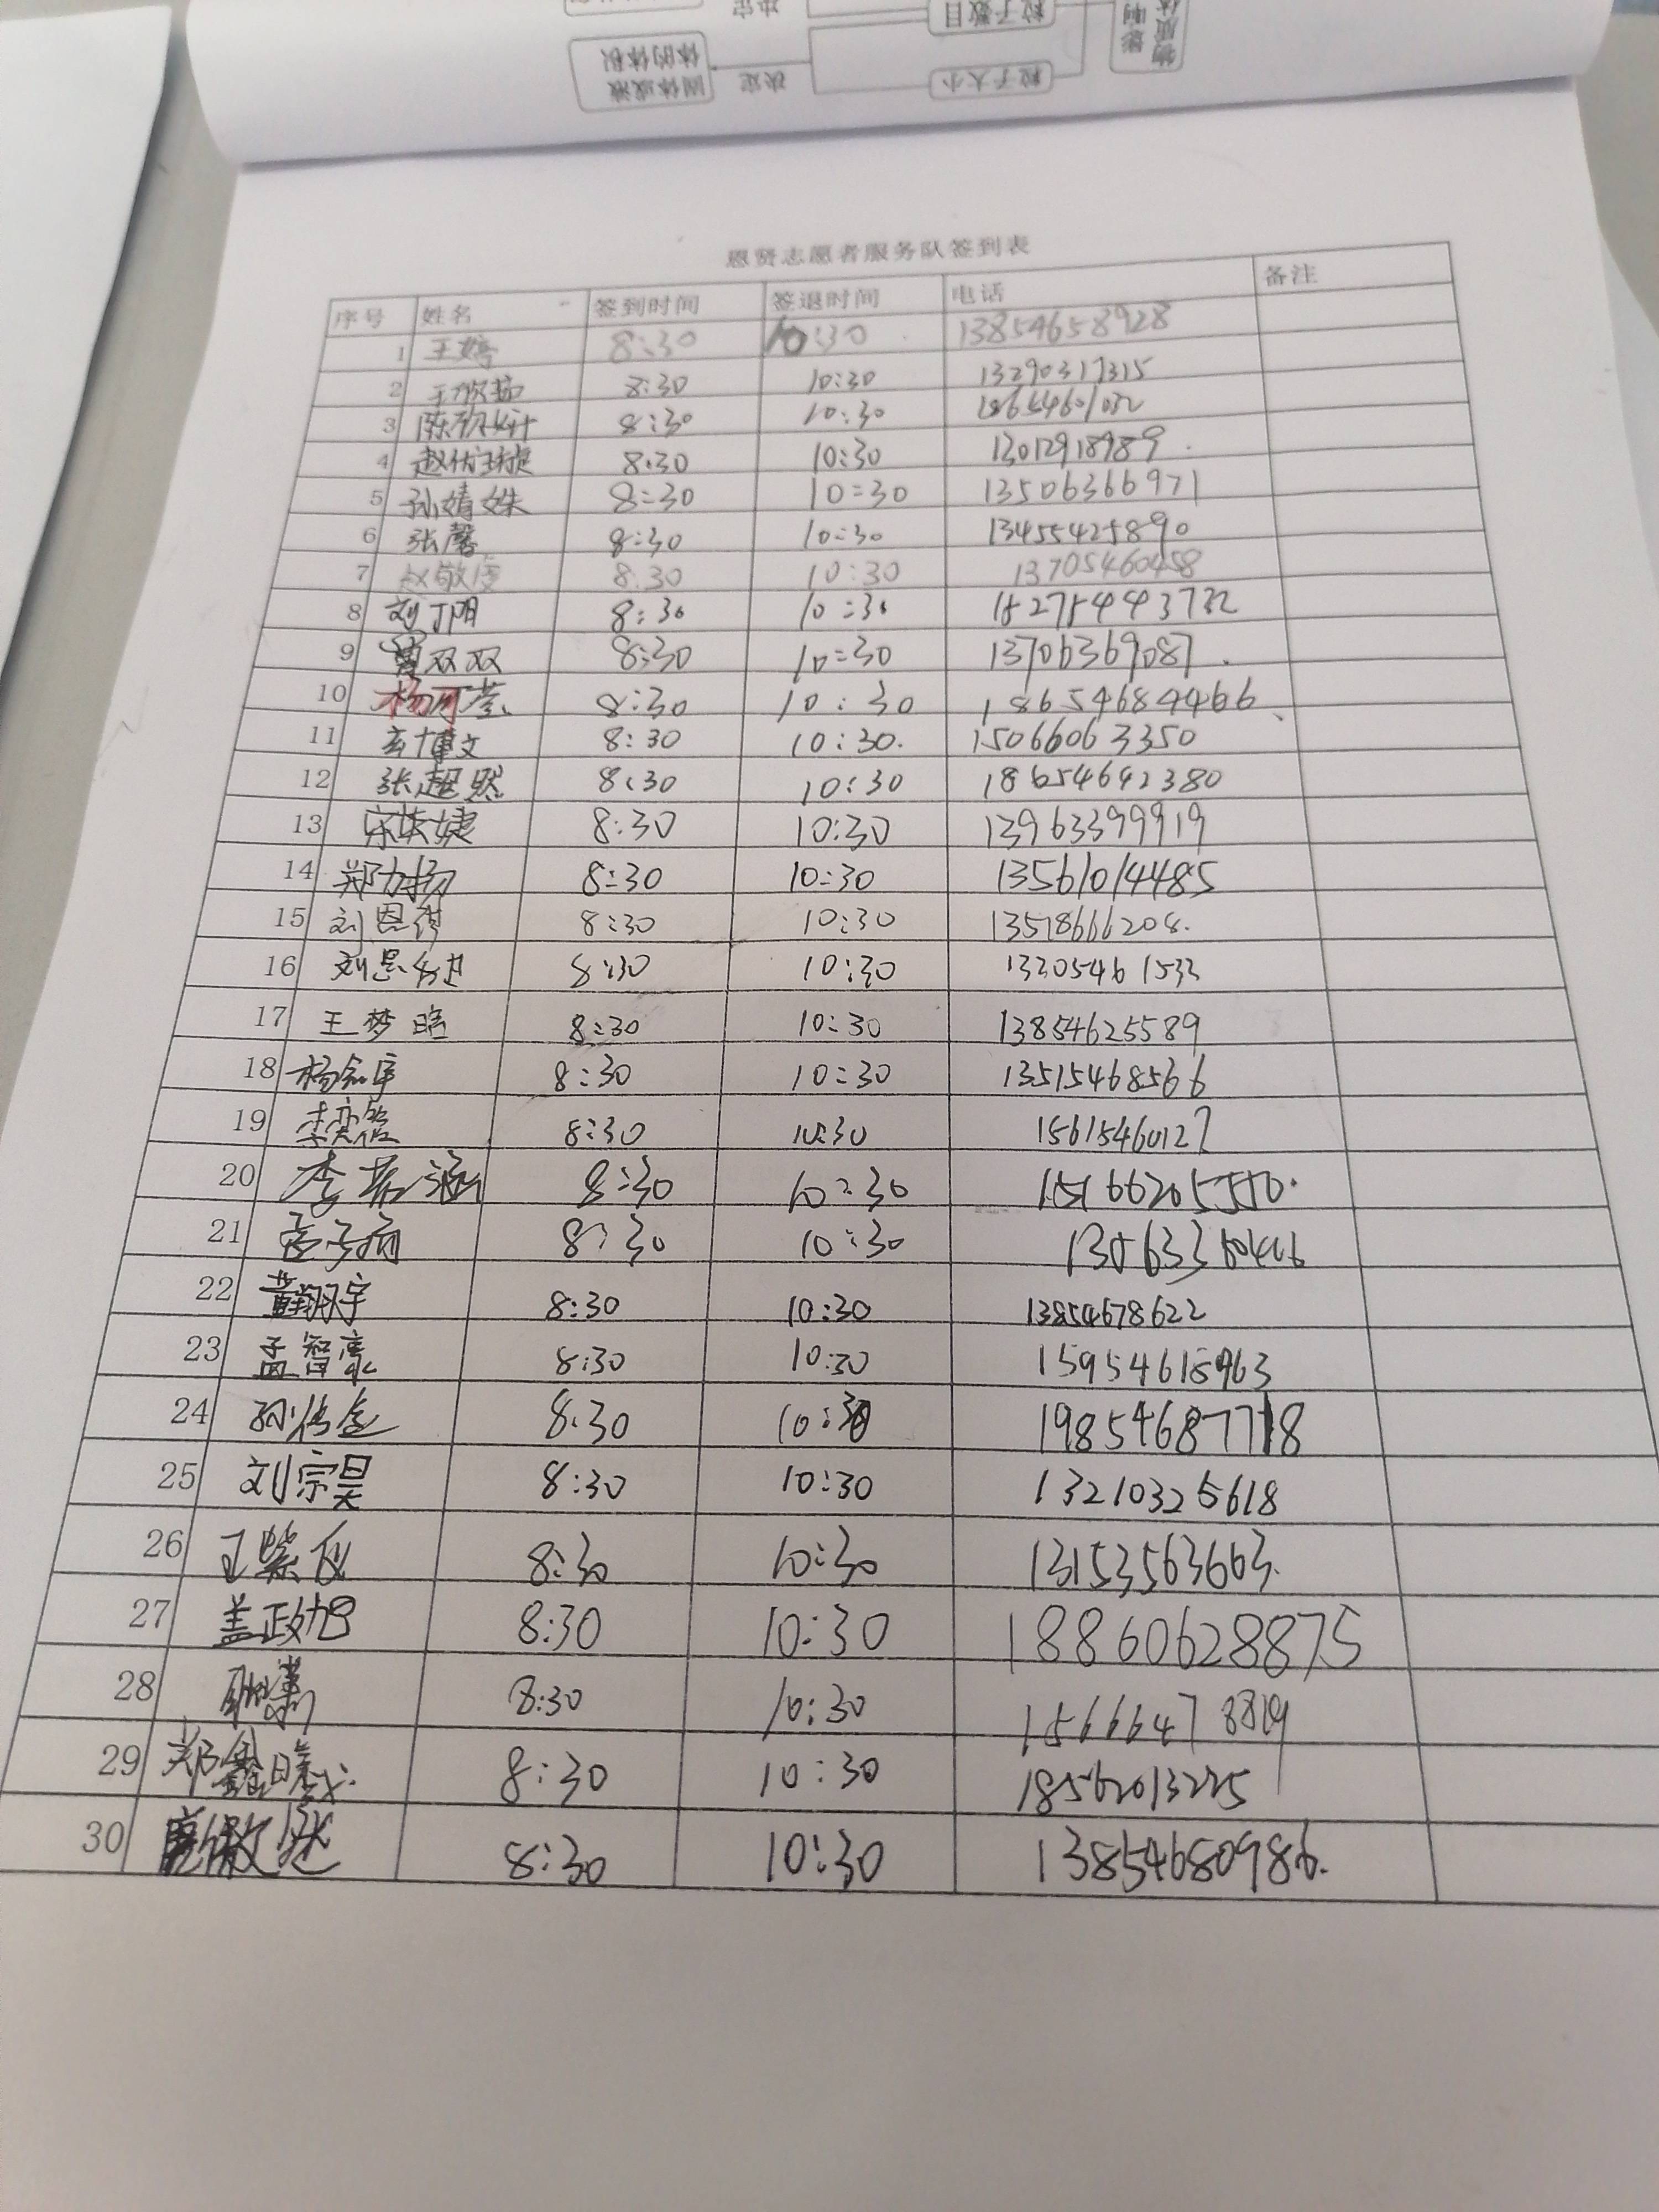 粒子数目
决定
粒子大小
决定
固体或液
体的体积
恩贤志愿者服务队签到表
序号 姓名 签到时间 签退时间 电话 备注
1 王婷 8:30 10:30 13854658928
2 8:30 10:30 13290317315
3 8:30 10:30
4 8:30 10:30 13012918989
5 孙婧姝 8:30 10:30 13506366971
6 张馨 8:30 10:30 13455425890
7 8:30 10:30 13705460458
8 刘丁阳 8:30 10:30
9 双双 8:30 10:30 13706369087
10 杨可莹 8:30 10:30 18654684466
11 玄博文 8:30 10:30 15066063350
12 张超然 8:30 10:30 18654642380
13 8:30 10:30 13963399919
14 郑力扬 8:30 10:30 13561014485
15 刘恩 8:30 10:30
16 刘思 8:30 10:30 13305461533
17 王梦晗 8:30 10:30 13854625589
18 8:30 10:30 13515468566
19 李奕 8:30 10:30 15615460127
20 李若涵 8:30 10:30 15166205550
21 8:30 10:30
22 黄翔宇 8:30 10:30 13854678622
23 孟智豪 8:30 10:30 15954618963
24 8:30 10:30 19854687718
25 刘宗昊 8:30 10:30 13210325618
26 王紫仪 8:30 10:30 13153563663
27 盖政旭 8:30 10:30 18860628875
28 8:30 10:30 15666478819
29 郑鑫 8:30 10:30 18562013225
30 8:30 10:30 13854680986